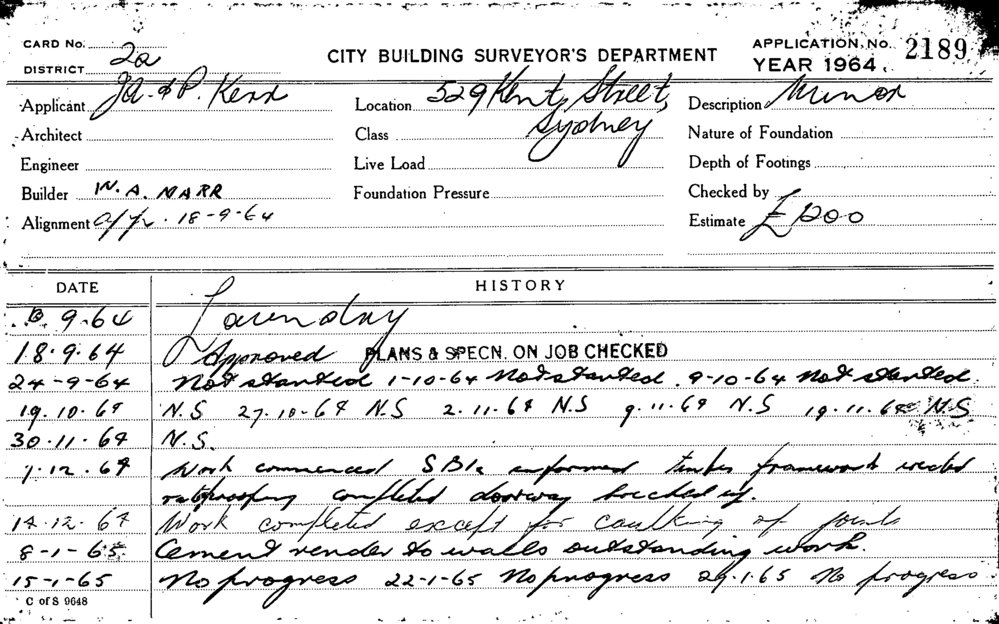 CARD No. 2a
CITY BUILDING SURVEYOR'S DEPARTMENT
APPLICATION No. 2189
DISTRICT
YEAR 1964
Applicant J.A. & P. Kerr
Location 529 Kent Street, Sydney
Description Minor
Architect
Class
Nature of Foundation
Engineer
Live Load
Depth of Footings
Builder W. A. MARR
Foundation Pressure
Checked by
Alignment app. 18-9-64
Estimate £1200
DATE HISTORY
9.64 Laundry
18.9.64 Approved PLANS & SPECN. ON JOB CHECKED
24-9-64 Not started 1-10-64 Not started. 9-10-64 Not started.
19.10.64 N.S 27.10.64 N.S 2.11.64 N.S 9.11.64 N.S 19.11.64 N.S
30.11.64 N.S.
7.12.64 Work commenced informed timber framework erected
ratproofing completed doorway bricked up.
14.12.64 Work completed except for caulking of joints
8-1-65 Cement render to walls outstanding work.
15-1-65 No progress 22-1-65 No progress 29.1.65 No progress
C of S 9648